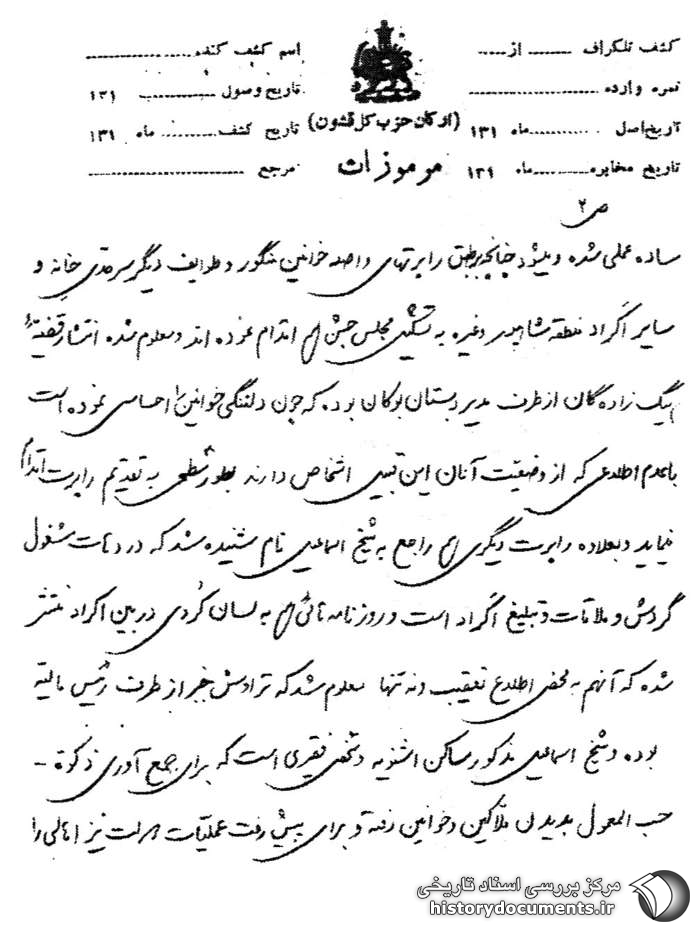 کشف تلگراف ........ از ......
اسم کشف کننده ....................
نمره وارده ....................
تاریخ وصول ............ ۱۳۱
تاریخ اصل ............ ماه ۱۳۱
(ارکان حزب کل قشون)
تاریخ کشف ......... ماه ۱۳۱
تاریخ مخابره ......... ماه ۱۳۱
مرموزات
مرجع ....................
ص ۲
ساده عملی شده و میشود چنانچه برطبق راپرتهای واصله خوانین منگور و طوایف دیگر سرحدی خانه و
سایر اکراد منطقه وغیره به تشکیل مجلس جشن هم اقدام نموده اند و معلوم شده انتشار قضیه
بیک زادگان از طرف مدیر دبستان بوکان بوده که چون دلتنگی خوانین را احساس نموده است
باعدم اطلاعی که از وضعیت آنان این قبیل اشخاص دارند بطور سطحی به تقدیم راپرت اقدام
نماید و بعلاوه راپرت دیگری هم راجع به شیخ اسماعیل نام شنیده شد که در دهات مشغول
گردش و ملاقات و تبلیغ اکراد است و روزنامه هائی هم به لسان کُردی در بین اکراد منتشر
شده که آنهم به محض اطلاع تعقیب و نه تنها معلوم شد که تراوش خبر از طرف رئیس مالیه
بوده و شیخ اسماعیل مذکور ساکن اشنویه و شخص فقیری است که برای جمع آوری ذکوة -
حسب المعمول بدیدن ملاکین و خوانین رفته و برای پیش رفت عملیات نیز اهالی را
مرکز بررسی اسناد تاریخی
historydocuments.ir